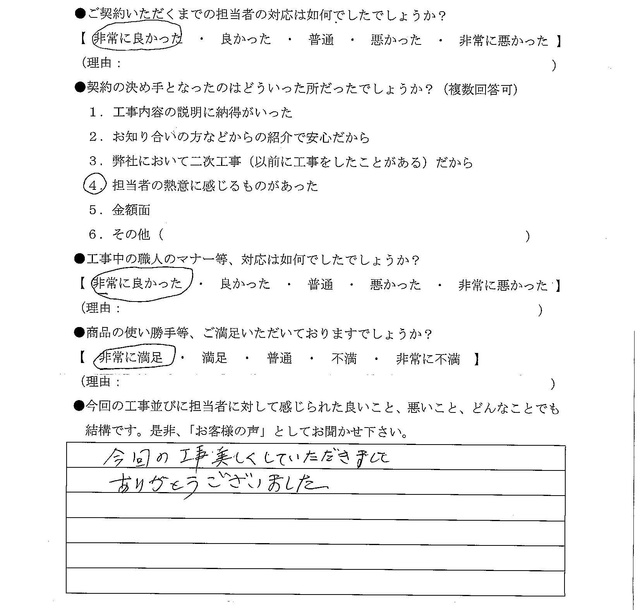 ●ご契約いただくまでの担当者の対応は如何でしたでしょうか？
【 非常に良かった ・ 良かった ・ 普通 ・ 悪かった ・ 非常に悪かった 】
（理由： ）
●契約の決め手となったのはどういった所だったでしょうか？（複数回答可）
１．工事内容の説明に納得がいった
２．お知り合いの方などからの紹介で安心だから
３．弊社において二次工事（以前に工事をしたことがある）だから
４．担当者の熱意に感じるものがあった
５．金額面
６．その他（ ）
●工事中の職人のマナー等、対応は如何でしたでしょうか？
【 非常に良かった ・ 良かった ・ 普通 ・ 悪かった ・ 非常に悪かった 】
（理由： ）
●商品の使い勝手等、ご満足いただいておりますでしょうか？
【 非常に満足 ・ 満足 ・ 普通 ・ 不満 ・ 非常に不満 】
（理由： ）
●今回の工事並びに担当者に対して感じられた良いこと、悪いこと、どんなことでも
結構です。是非、「お客様の声」としてお聞かせ下さい。
今回の工事美しくしていただきまして
ありがとうございました